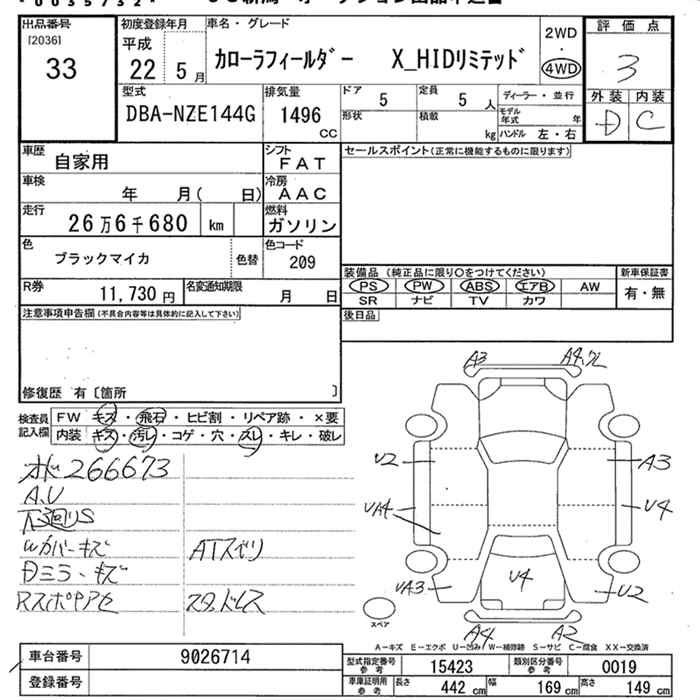 出品番号
[2036]
33
初度登録年月
平成
22 5月
車名・グレード
カローラフィールダー X_HIDリミテッド
2WD
・
4WD
評価点
3
外装 内装
D C
型式
DBA-NZE144G
排気量
1496
CC
ドア
5
定員
5人
形状
積載
kg
ディーラー・並行
モデル年式 年
ハンドル 左・右
車歴
自家用
シフト
FAT
セールスポイント(正常に機能するものに限ります)
車検
年 月( 日)
冷房
AAC
走行
26万6千680 km
燃料
ガソリン
色
ブラックマイカ
色替
色コード
209
R券
11,730円
名変通知期限
月 日
装備品(純正品に限り○をつけてください)
PS PW ABS エアB AW
SR ナビ TV カワ
新車保証書
有・無
後日品
注意事項申告欄(不具合内容等は具体的に記入して下さい)
修復歴 有〔箇所 〕
検査員記入欄
FW キズ・飛石・ヒビ割・リペア跡・×要
内装 キズ・汚レ・コゲ・穴・スレ・キレ・破レ
266673
A.U
下廻りS
Wカバーキズ
ATスベリ
Dミラーキズ
スタッドレス
A3
A4.ワレ
U2
A3
UA4
U4
UA3
U4
U2
A4
A2
スペア
A-キズ E-エクボ U-凹み W-補修跡 S-サビ C-腐食 XX-交換済
車台番号
9026714
登録番号
型式指定番号
参考
15423
類別区分番号
参考
0019
車庫証明用
参考
長さ 442cm 幅 169cm 高さ 149cm